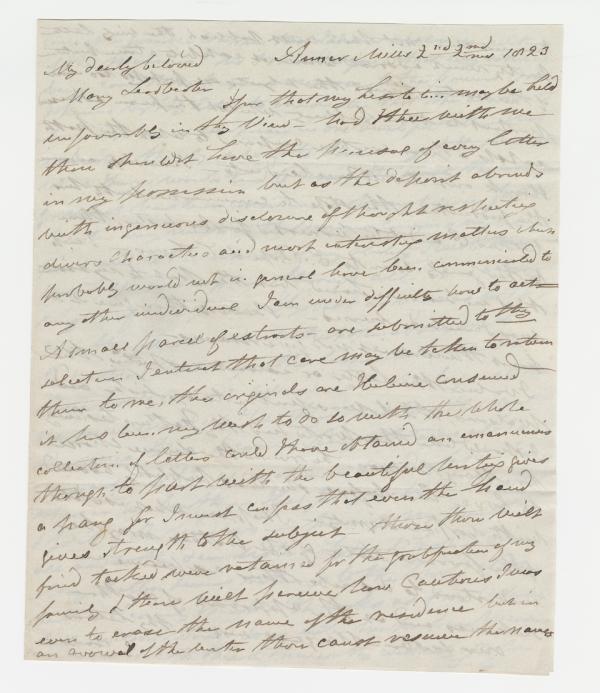 Anner Mills 2nd 2nd mo 1823
My dearly beloved
Mary Leadbeater
I fear that my hesitation may be held
unfavorably in thy View – had I thee with me
thou shouldst have the perusal of every letter
in my possession but as the deposit abounds
with ingenuous disclosure of thought respecting
divers Characters and most interesting matters which
probably would not in general have been communicated to
any other individual I am under difficulty how to act –
A small parcel of extracts – are submitted to thy
selection I entreat that care may be taken to return
them to me, the originals are I believe consumed
it has been my wish to do so with the whole
collection of letters could I have obtained an amanuensis
though to part with the beautiful writing gives
a pang for I must confess that even the hand
gives strength to the subject those thou wilt
find tacked were retained for the gratification of my
family & thou wilt perceive how Cautious I was
even to erase the name of the residence but in
an avowal of the writer thou canst rescue the names